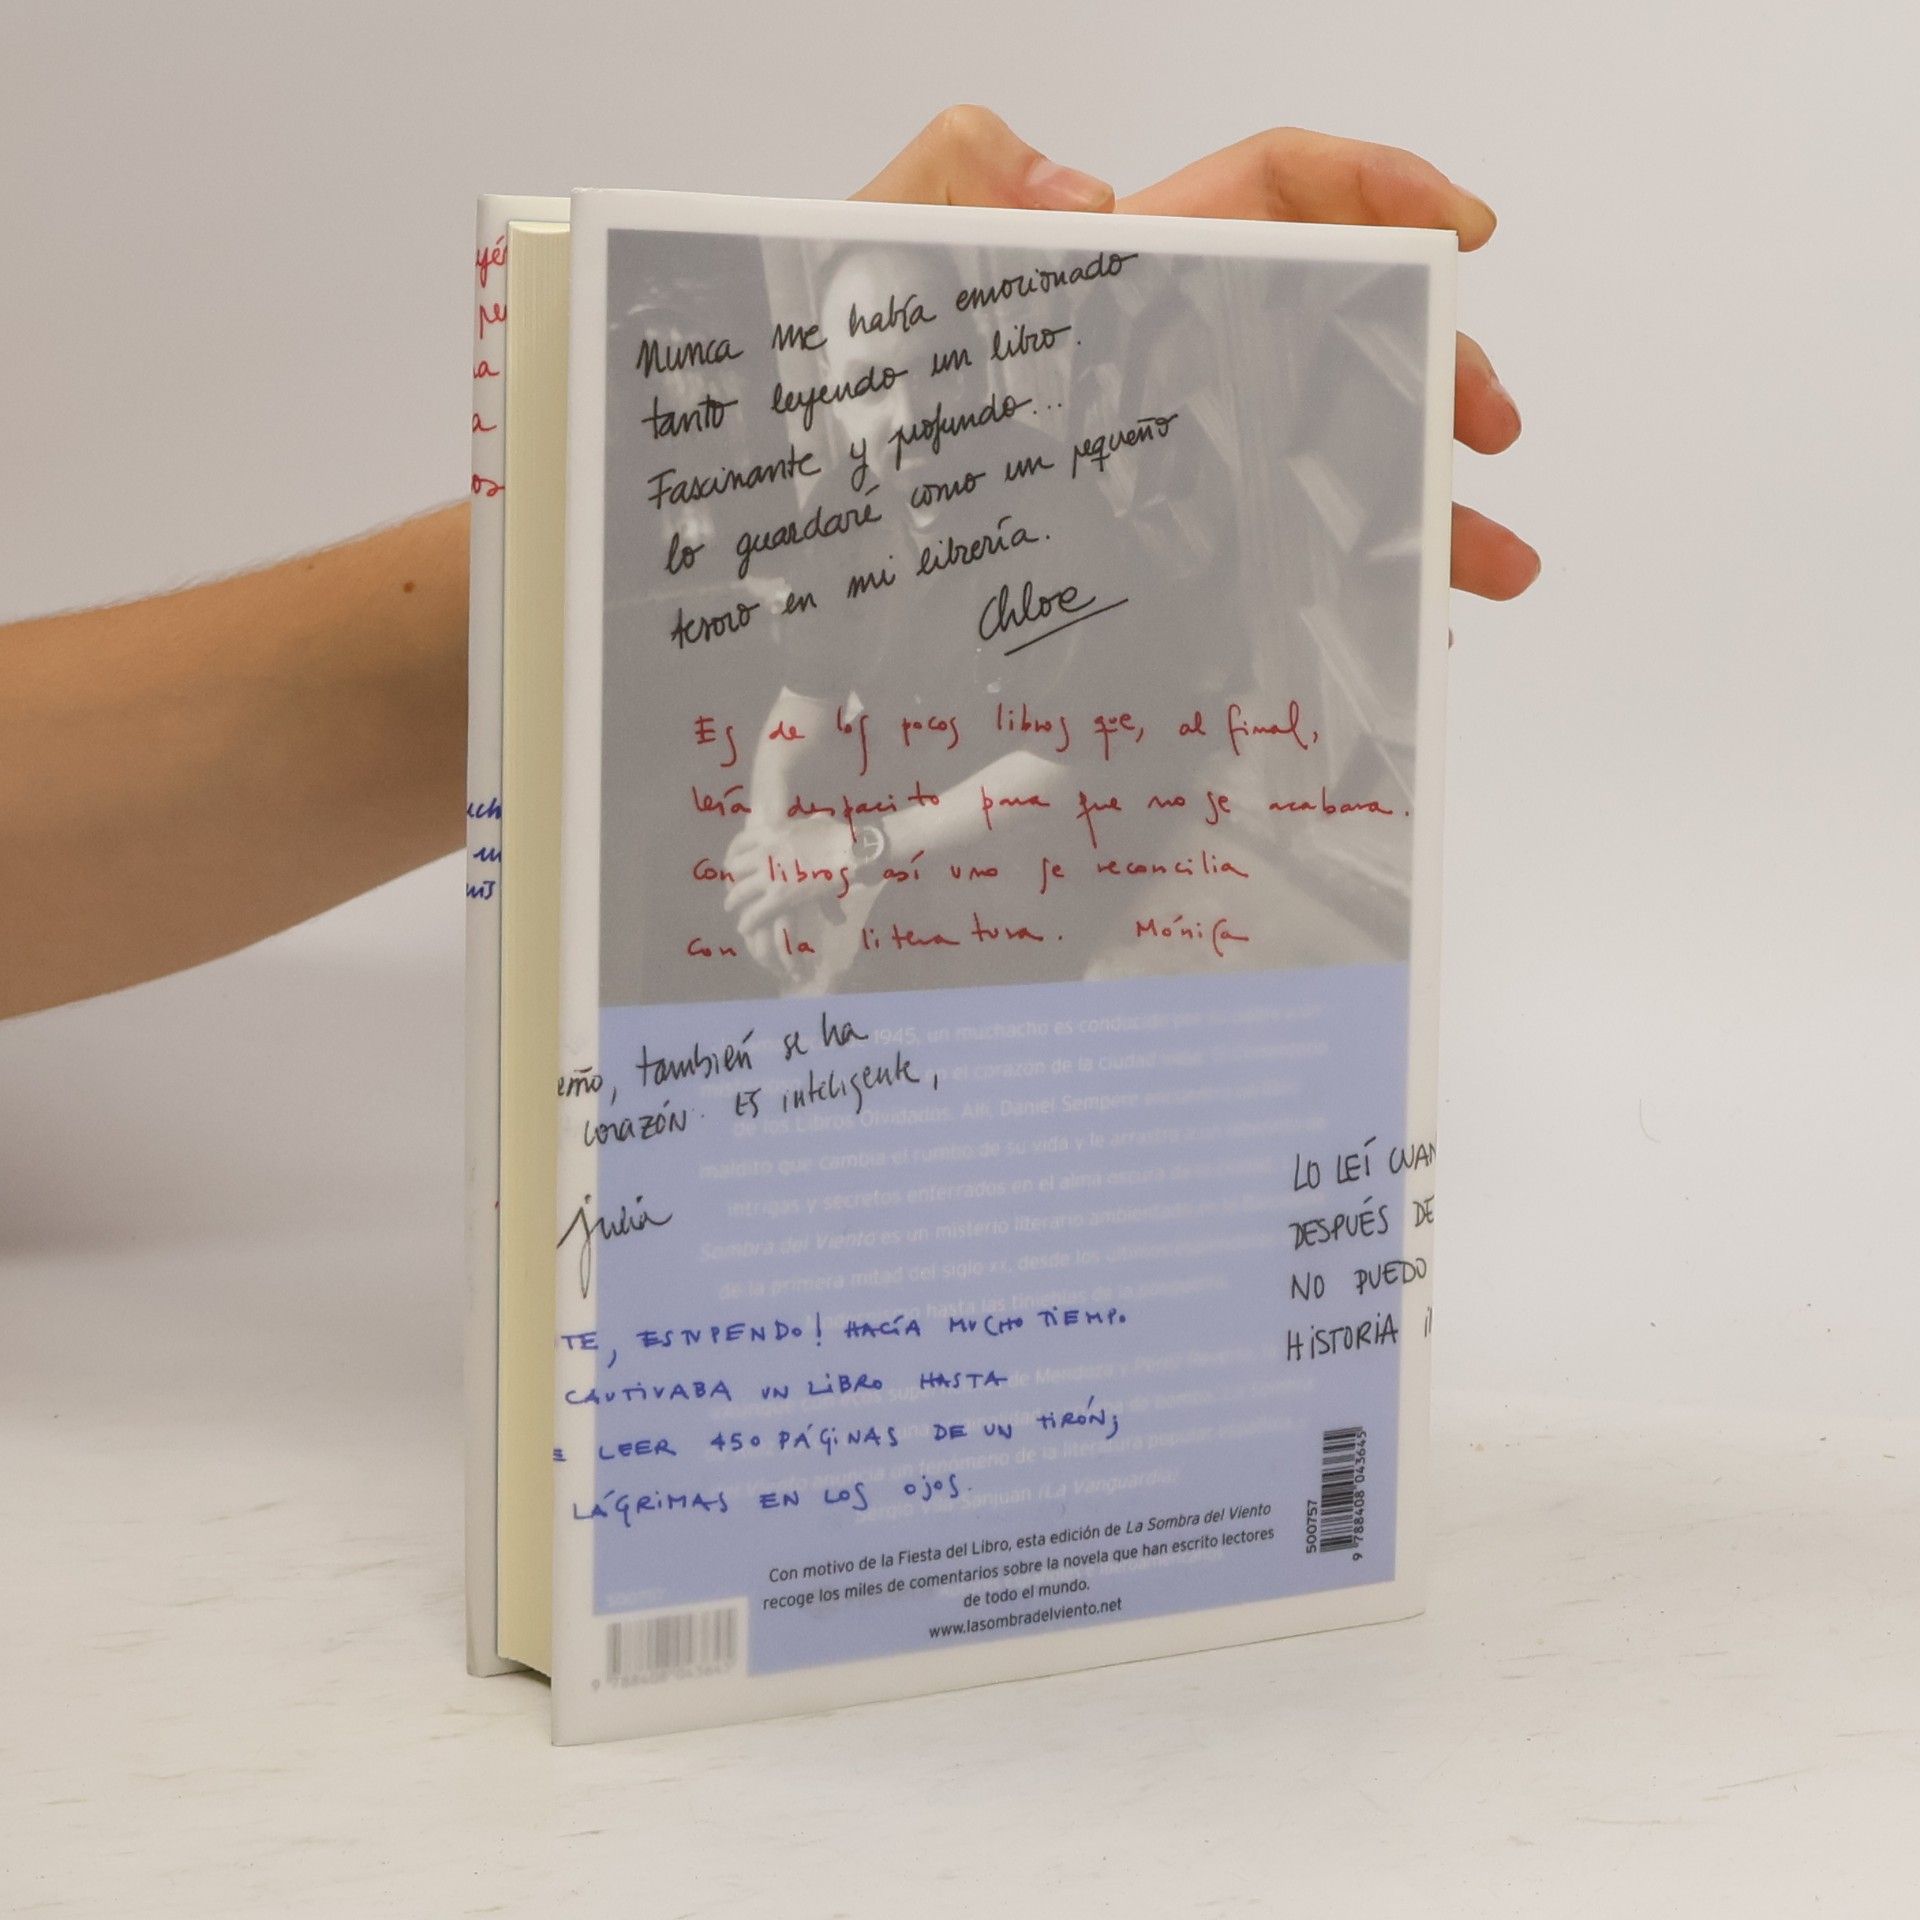 yé
pe
a
a
os
uch
un
Nunca me había emocionado
tanto leyendo un libro.
Fascinante y profundo...
lo guardaré como un pequeño
tesoro en mi librería.
Chloe
Es de los pocos libros que, al final,
leía despacito para que no se acabara.
Con libros así uno se reconcilia
con la literatura. Mónica
eño, también se ha
corazón. ES inteligente,
julia
LO LEÍ CUAN
DESPUÉS DE
NO PUEDO
HISTORIA
TE, ESTUPENDO! HACÍA MUCHO TIEMPO
CAUTIVABA UN LIBRO HASTA
E LEER 450 PÁGINAS DE UN TIRÓN;
LÁGRIMAS EN LOS OJOS.
1945, un muchacho es conducido
en el corazón de la ciudad
de los Libros Olvidados. Allí, Daniel Sempere
maldito que cambia el rumbo de su vida y le arrastra
intrigas y secretos enterrados en el alma oscura
Sombra del Viento es un misterio literario ambientado
de la primera mitad del siglo XX, desde los últimos
hasta las tinieblas de la
de Mendoza y Pérez
Viento anuncia un fenómeno de la literatura popular española
Sergio Vila-Sanjuán (La Vanguardia)
Con motivo de la Fiesta del Libro, esta edición de La Sombra del Viento
recoge los miles de comentarios sobre la novela que han escrito lectores
de todo el mundo.
www.lasombradelviento.net
500757
9 788408 043645
500757
9 788408 043645